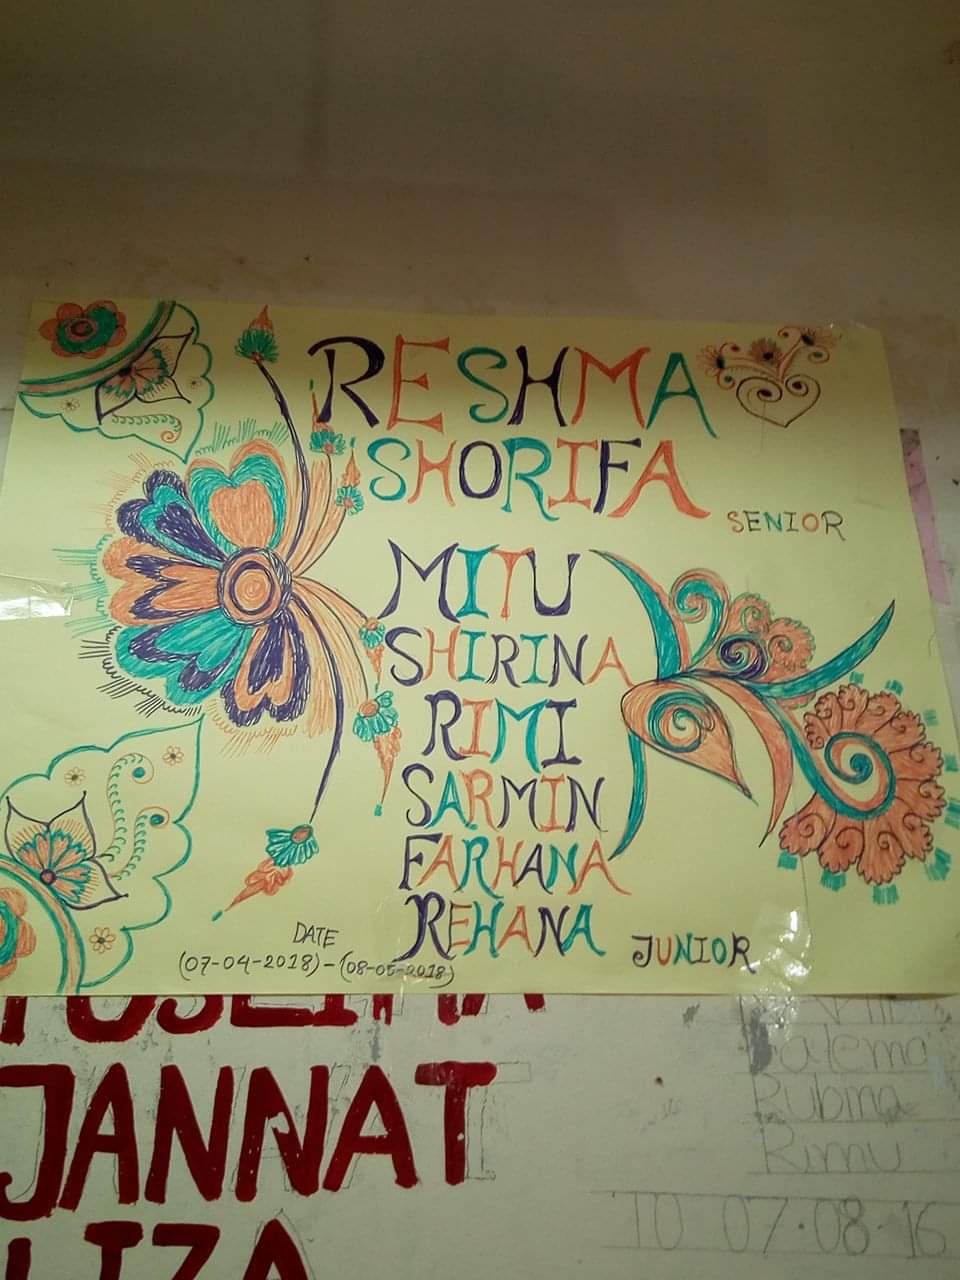 RESHMA
SHORIFA
SENIOR
MITU
SHIRINA
RIMI
SARMIN
FARHANA
REHANA
JUNIOR
DATE
(07-04-2018)-(08-05-2018)
JANNAT
LIZA
Fatema
Rubina
Rimu
TO 07.08.16